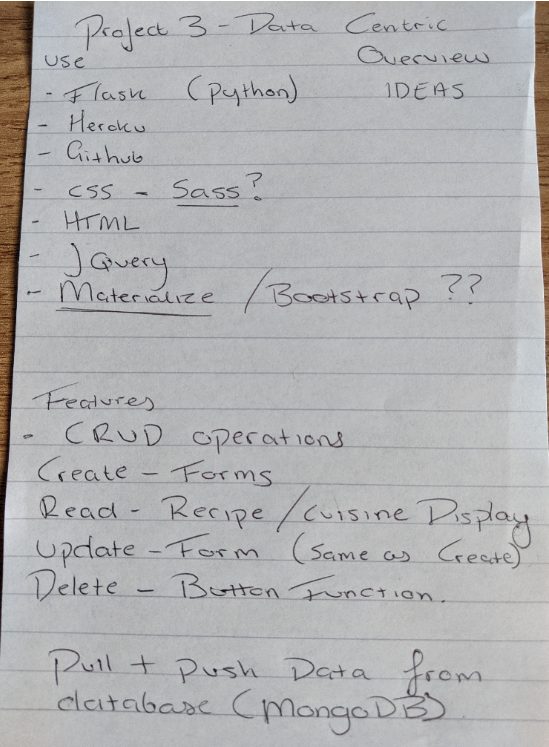 Project 3 - Data Centric
Use Overview
- Flask (Python) IDEAS
- Heroku
- Github
- CSS - Sass?
- HTML
- JQuery
- Materialize / Bootstrap ??
Features
- CRUD operations
Create - Forms
Read - Recipe / Cuisine Display
Update - Form (Same as Create)
Delete - Button Function.
Pull + Push Data from
database (MongoDB)